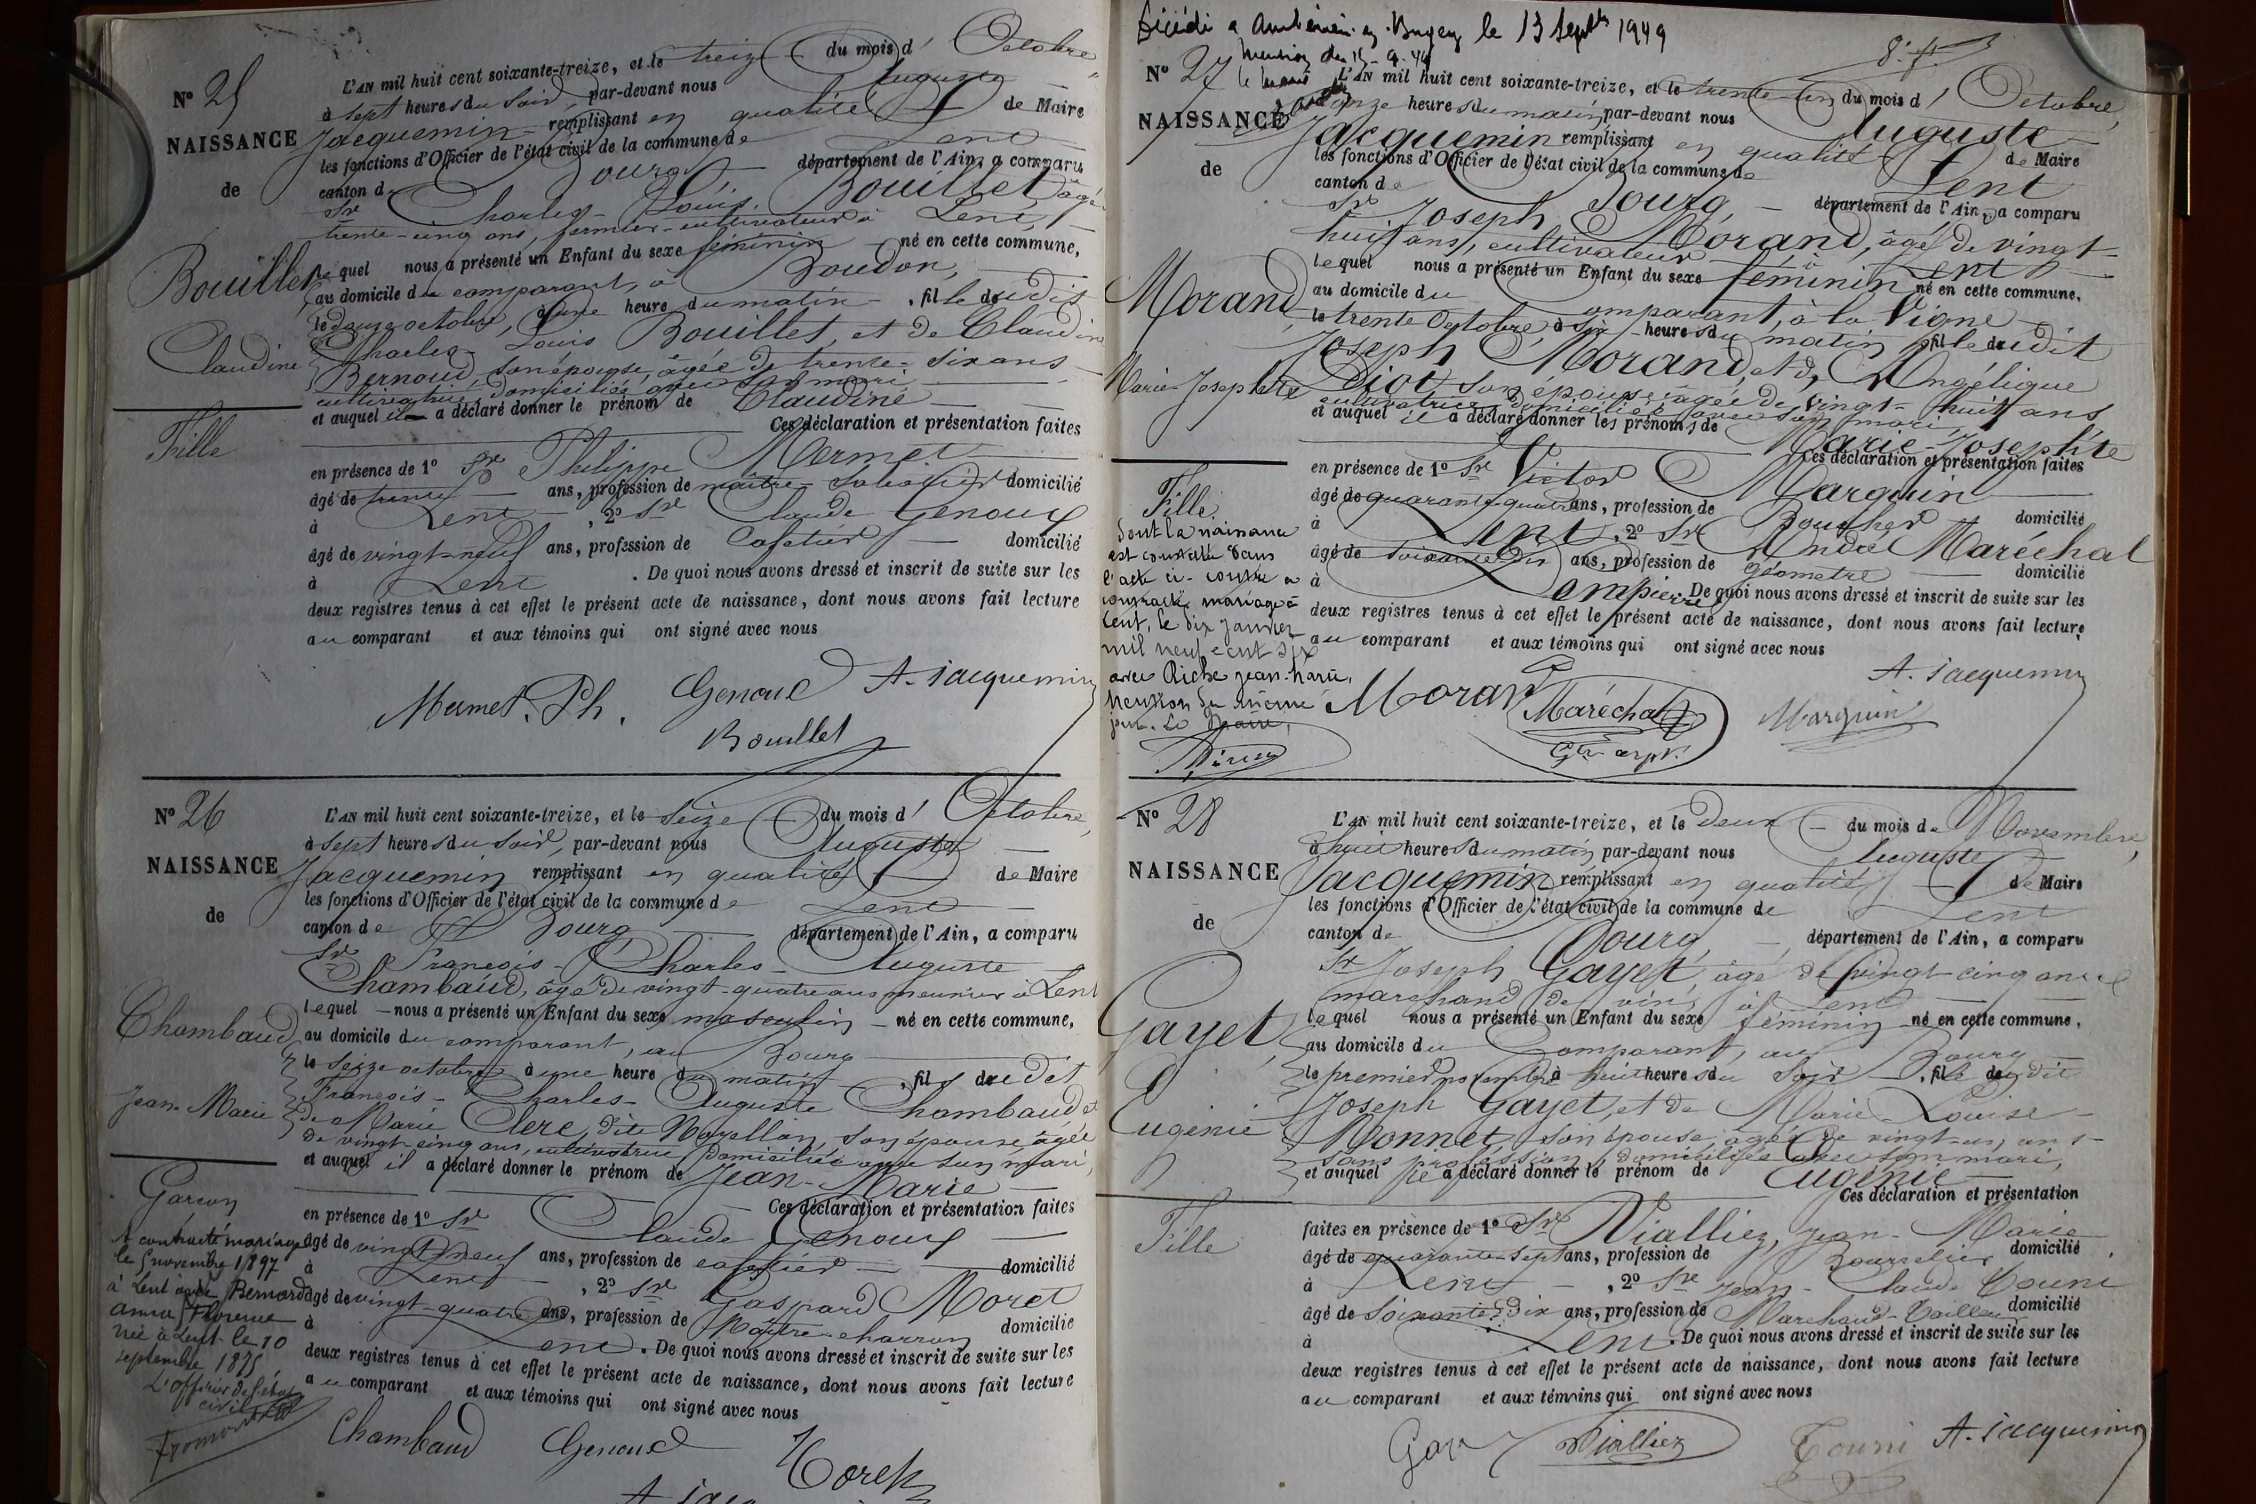 N° 25
NAISSANCE
de
Bouillet
Claudine
Fille
L'AN mil huit cent soixante-treize, et le treize du mois d' Octobre,
à sept heures du soir, par-devant nous Auguste
Jacquemin remplissant en qualité de Maire
les fonctions d'Officier de l'état civil de la commune de Lent
canton de Bourg département de l'Ain, a comparu
Sr Charles-Louis Bouillet âgé
trente-cinq ans, fermier-cultivateur à Lent,
lequel nous a présenté un Enfant du sexe féminin né en cette commune,
au domicile du comparant, à Boudon,
le douze octobre, à une heure du matin, fille dudit
Charles-Louis Bouillet, et de Claudine
Bernoud, son épouse, âgée de trente-six ans
cultivatrice, domiciliée avec son mari
et auquel il a déclaré donner le prénom de Claudine
Ces déclaration et présentation faites
en présence de 1° Sr Philippe Mermet
âgé de trente ans, profession de maître-sabotier domicilié
à Lent, 2° Sr Claude Genoux
âgé de vingt-neuf ans, profession de Cafetier domicilié
à Lent. De quoi nous avons dressé et inscrit de suite sur les
deux registres tenus à cet effet le présent acte de naissance, dont nous avons fait lecture
au comparant et aux témoins qui ont signé avec nous
Mermet. Ph. Genoud A. Jacquemin
Bouillet
N° 26
NAISSANCE
de
Chambaud
Jean-Marie
Garçon
A contracté mariage
le 5 novembre 1897
à Lent avec Bernard
Anna Florence
née à Lent le 10
septembre 1875
L'officier de l'état
civil
L'AN mil huit cent soixante-treize, et le seize du mois d' Octobre,
à sept heures du soir, par-devant nous Auguste
Jacquemin remplissant en qualité de Maire
les fonctions d'Officier de l'état civil de la commune de Lent
canton de Bourg département de l'Ain, a comparu
Sr François-Charles-Auguste
Chambaud, âgé de vingt-quatre ans meunier à Lent
lequel nous a présenté un Enfant du sexe masculin né en cette commune,
au domicile du comparant, au Bourg
le seize octobre à une heure du matin, fils dudit
François-Charles-Auguste Chambaud et
de Marie Clerc, dite Morellon, son épouse, âgée
de vingt-cinq ans, cultivatrice domiciliée avec son mari,
et auquel il a déclaré donner le prénom de Jean-Marie
Ces déclaration et présentation faites
en présence de 1° Sr Claude Genoux
âgé de vingt-neuf ans, profession de cafetier domicilié
à Lent, 2° Sr Gaspard Moret
âgé de vingt-quatre ans, profession de Maître-charron domicilié
à Lent. De quoi nous avons dressé et inscrit de suite sur les
deux registres tenus à cet effet le présent acte de naissance, dont nous avons fait lecture
au comparant et aux témoins qui ont signé avec nous
Chambaud Genoud Moret
Décédé a Ambérieu en Bugey le 13 Septbre 1949
mention du 15-9-49
le maire
8. f.
N° 27
NAISSANCE
de
Morand
Marie-Josephte
Fille
dont la naissance
est constatée dans
l'acte ci-contre a
contracté mariage à
Lent, le dix janvier
mil neuf cent six
avec Riche Jean-Marie.
Mention du même
jour. Le Maire,
L'AN mil huit cent soixante-treize, et le trente-un du mois d' Octobre,
à onze heures du matin, par-devant nous Auguste
Jacquemin remplissant en qualité de Maire
les fonctions d'Officier de l'état civil de la commune de Lent
canton de Bourg, département de l'Ain, a comparu
Sr Joseph Morand, âgé de vingt-
huit ans, cultivateur à Lent
lequel nous a présenté un Enfant du sexe féminin né en cette commune,
au domicile du comparant, à la Vigne
le trente Octobre, à six heures du matin, fille dudit
Joseph Morand, et d'Angélique
Diot, son épouse, âgée de vingt-huit ans
cultivatrice, domiciliée avec son mari,
et auquel il a déclaré donner les prénoms de Marie-Josephte
Ces déclaration et présentation faites
en présence de 1° Sr Victor Marguin
âgé de quarante-quatre ans, profession de Boucher domicilié
à Lent, 2° Sr André Maréchal
âgé de soixante-dix ans, profession de géomètre domicilié
à Dompierre. De quoi nous avons dressé et inscrit de suite sur les
deux registres tenus à cet effet le présent acte de naissance, dont nous avons fait lecture
au comparant et aux témoins qui ont signé acec nous
A. Jacquemin
Morand Maréchal Marguin
N° 28
NAISSANCE
de
Gayet
Eugénie
Fille
L'AN mil huit cent soixante-treize, et le deux du mois de Novembre,
à huit heures du matin par-devant nous Auguste
Jacquemin remplissant en qualité de Maire
les fonctions d'Officier de l'état civil de la commune de Lent
canton de Bourg, département de l'Ain, a comparu
Sr Joseph Gayet, âgé de vingt-cinq ans
marchand de vins à Lent
lequel nous a présenté un Enfant du sexe féminin né en cette commune,
au domicile du Comparant, au Bourg
le premier novembre à huit heures du soir, fille dudit
Joseph Gayet, et de Marie-Louise
Monnet, son épouse, âgée de vingt-un ans
sans profession, domiciliée avec son mari,
et auquel il a déclaré donner le prénom de Eugénie
Ces déclaration et présentation
faites en présence de 1° Sr Vialliez, Jean-Marie
âgé de quarante-sept ans, profession de Bourrelier domicilié
à Lent, 2° Sr Jean-Claude Tourni
âgé de soixante-dix ans, profession de Marchand-Tailleur domicilié
à Lent. De quoi nous avons dressé et inscrit de suite sur les
deux registres tenus à cet effet le présent acte de naissance, dont nous avons fait lecture
au comparant et aux témoins qui ont signé avec nous
Gayet Vialliez Tourni A. Jacquemin